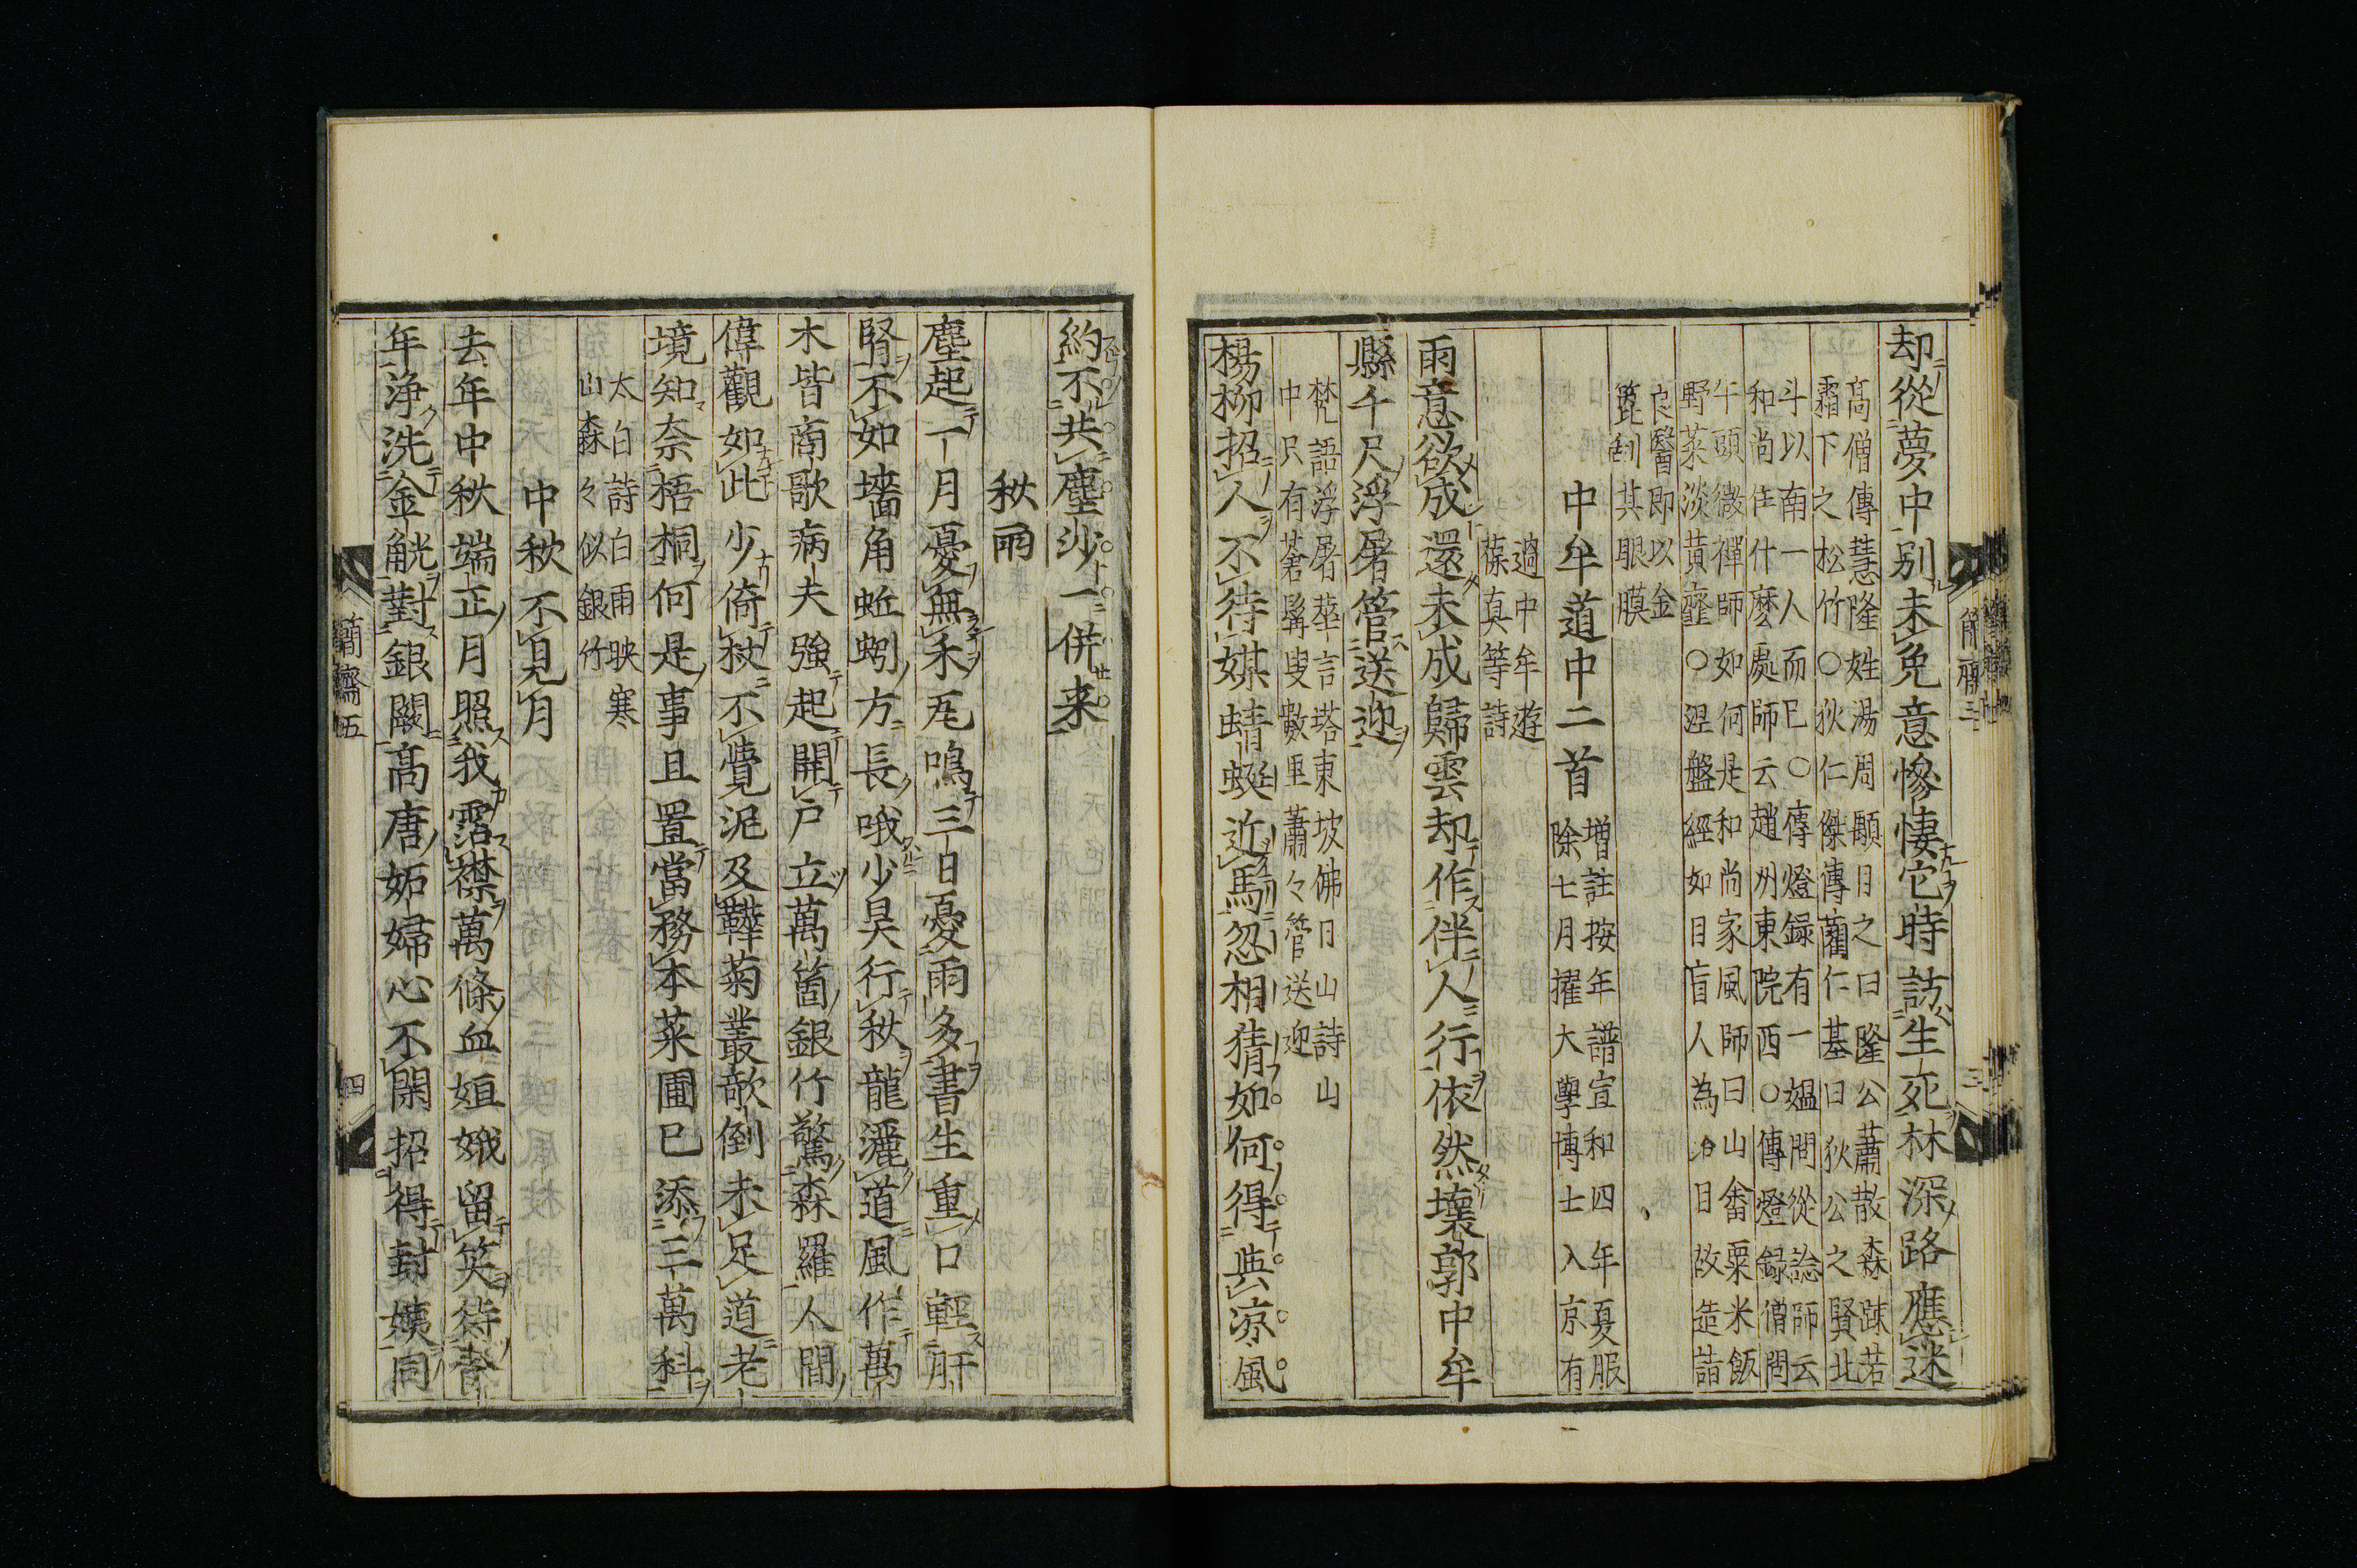 却從夢中別未免意慘悽它時訪生死林深路應迷
高僧傳慧隆姓湯周顒目之曰隆公蕭散森疎若
霜下之松竹○狄仁傑傳藺仁基曰狄公之賢北
斗以南一人而已○傳燈録有一媼問從諗師云
和尚住什麽處師云趙州東院西○傳燈録僧問
牛頭微禪師如何是和尚家風師曰山畬粟米飯
野菜淡黃虀○涅盤經如目盲人為治目故造詣
良醫即以金
篦刮其眼膜
中牟道中二首
増註按年譜宣和四年夏服
除七月擢大學博士入京有
過中牟遊
葆真等詩
雨意欲成還未成歸雲却作伴人行依然壞郭中牟
縣千尺浮屠管送迎
梵語浮屠華言塔東坡佛日山詩山
中只有蒼髯叟數里蕭々管送迎
楊柳招人不待媒蜻蜓近馬忽相猜如何得與凉風
約不共塵沙一併来
秋雨
塵起一月憂無禾瓦鳴三日憂雨多書生重口輕肝
腎不如墻角蚯蚓方長哦少昊行秋龍灑道風作萬
木皆商歌病夫強起開戶立萬箇銀竹驚森羅人間
偉觀如此少倚杖不覺泥及鞾菊叢欹倒未足道老
境知奈梧桐何是事且置當務本菜圃已添三萬科
太白詩白雨映寒
山森々似銀竹
中秋不見月
去年中秋端正月照我霑襟萬條血姮娥留笑待今
年淨洗金觥對銀闕高唐妬婦心不閑招得封姨同
簡齋五
四